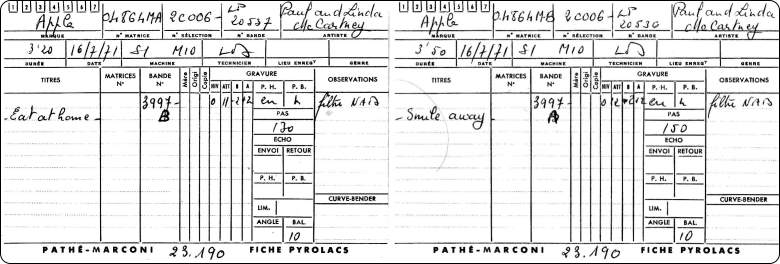 1 2 3 4 5 6 7
Apple 04864MA 2C006- LP 20537 Paul and Linda McCartney
MARQUE N° MATRICE N° SÉLECTION N° BANDE ARTISTE
3'20 16/7/71 S1 M10
DURÉE DATE MACHINE TECHNICIEN LIEU ENREGt GENRE
TITRES MATRICES N° BANDE N° Mère Origi Copie GRAVURE OBSERVATIONS
NIV ATT B A P. H. P. B.
Eat at home 3997- B 0 11 -2 +2 en h filtre NAB
PAS
130
ECHO
ENVOI RETOUR
P. H. P. B.
CURVE-BENDER
LIM.
ANGLE BAL.
10
PATHÉ-MARCONI 23.190 FICHE PYROLACS
1 2 3 4 5 6 7
Apple 04864MB 2C006- LP 20536 Paul and Linda McCartney
MARQUE N° MATRICE N° SÉLECTION N° BANDE ARTISTE
3'50 16/7/71 S1 M10
DURÉE DATE MACHINE TECHNICIEN LIEU ENREGt GENRE
TITRES MATRICES N° BANDE N° Mère Origi Copie GRAVURE OBSERVATIONS
NIV ATT B A P. H. P. B.
Smile away 3997- A 0 12 +2 en h filtre NAB
PAS
150
ECHO
ENVOI RETOUR
P. H. P. B.
CURVE-BENDER
LIM.
ANGLE BAL.
10
PATHÉ-MARCONI 23.190 FICHE PYROLACS